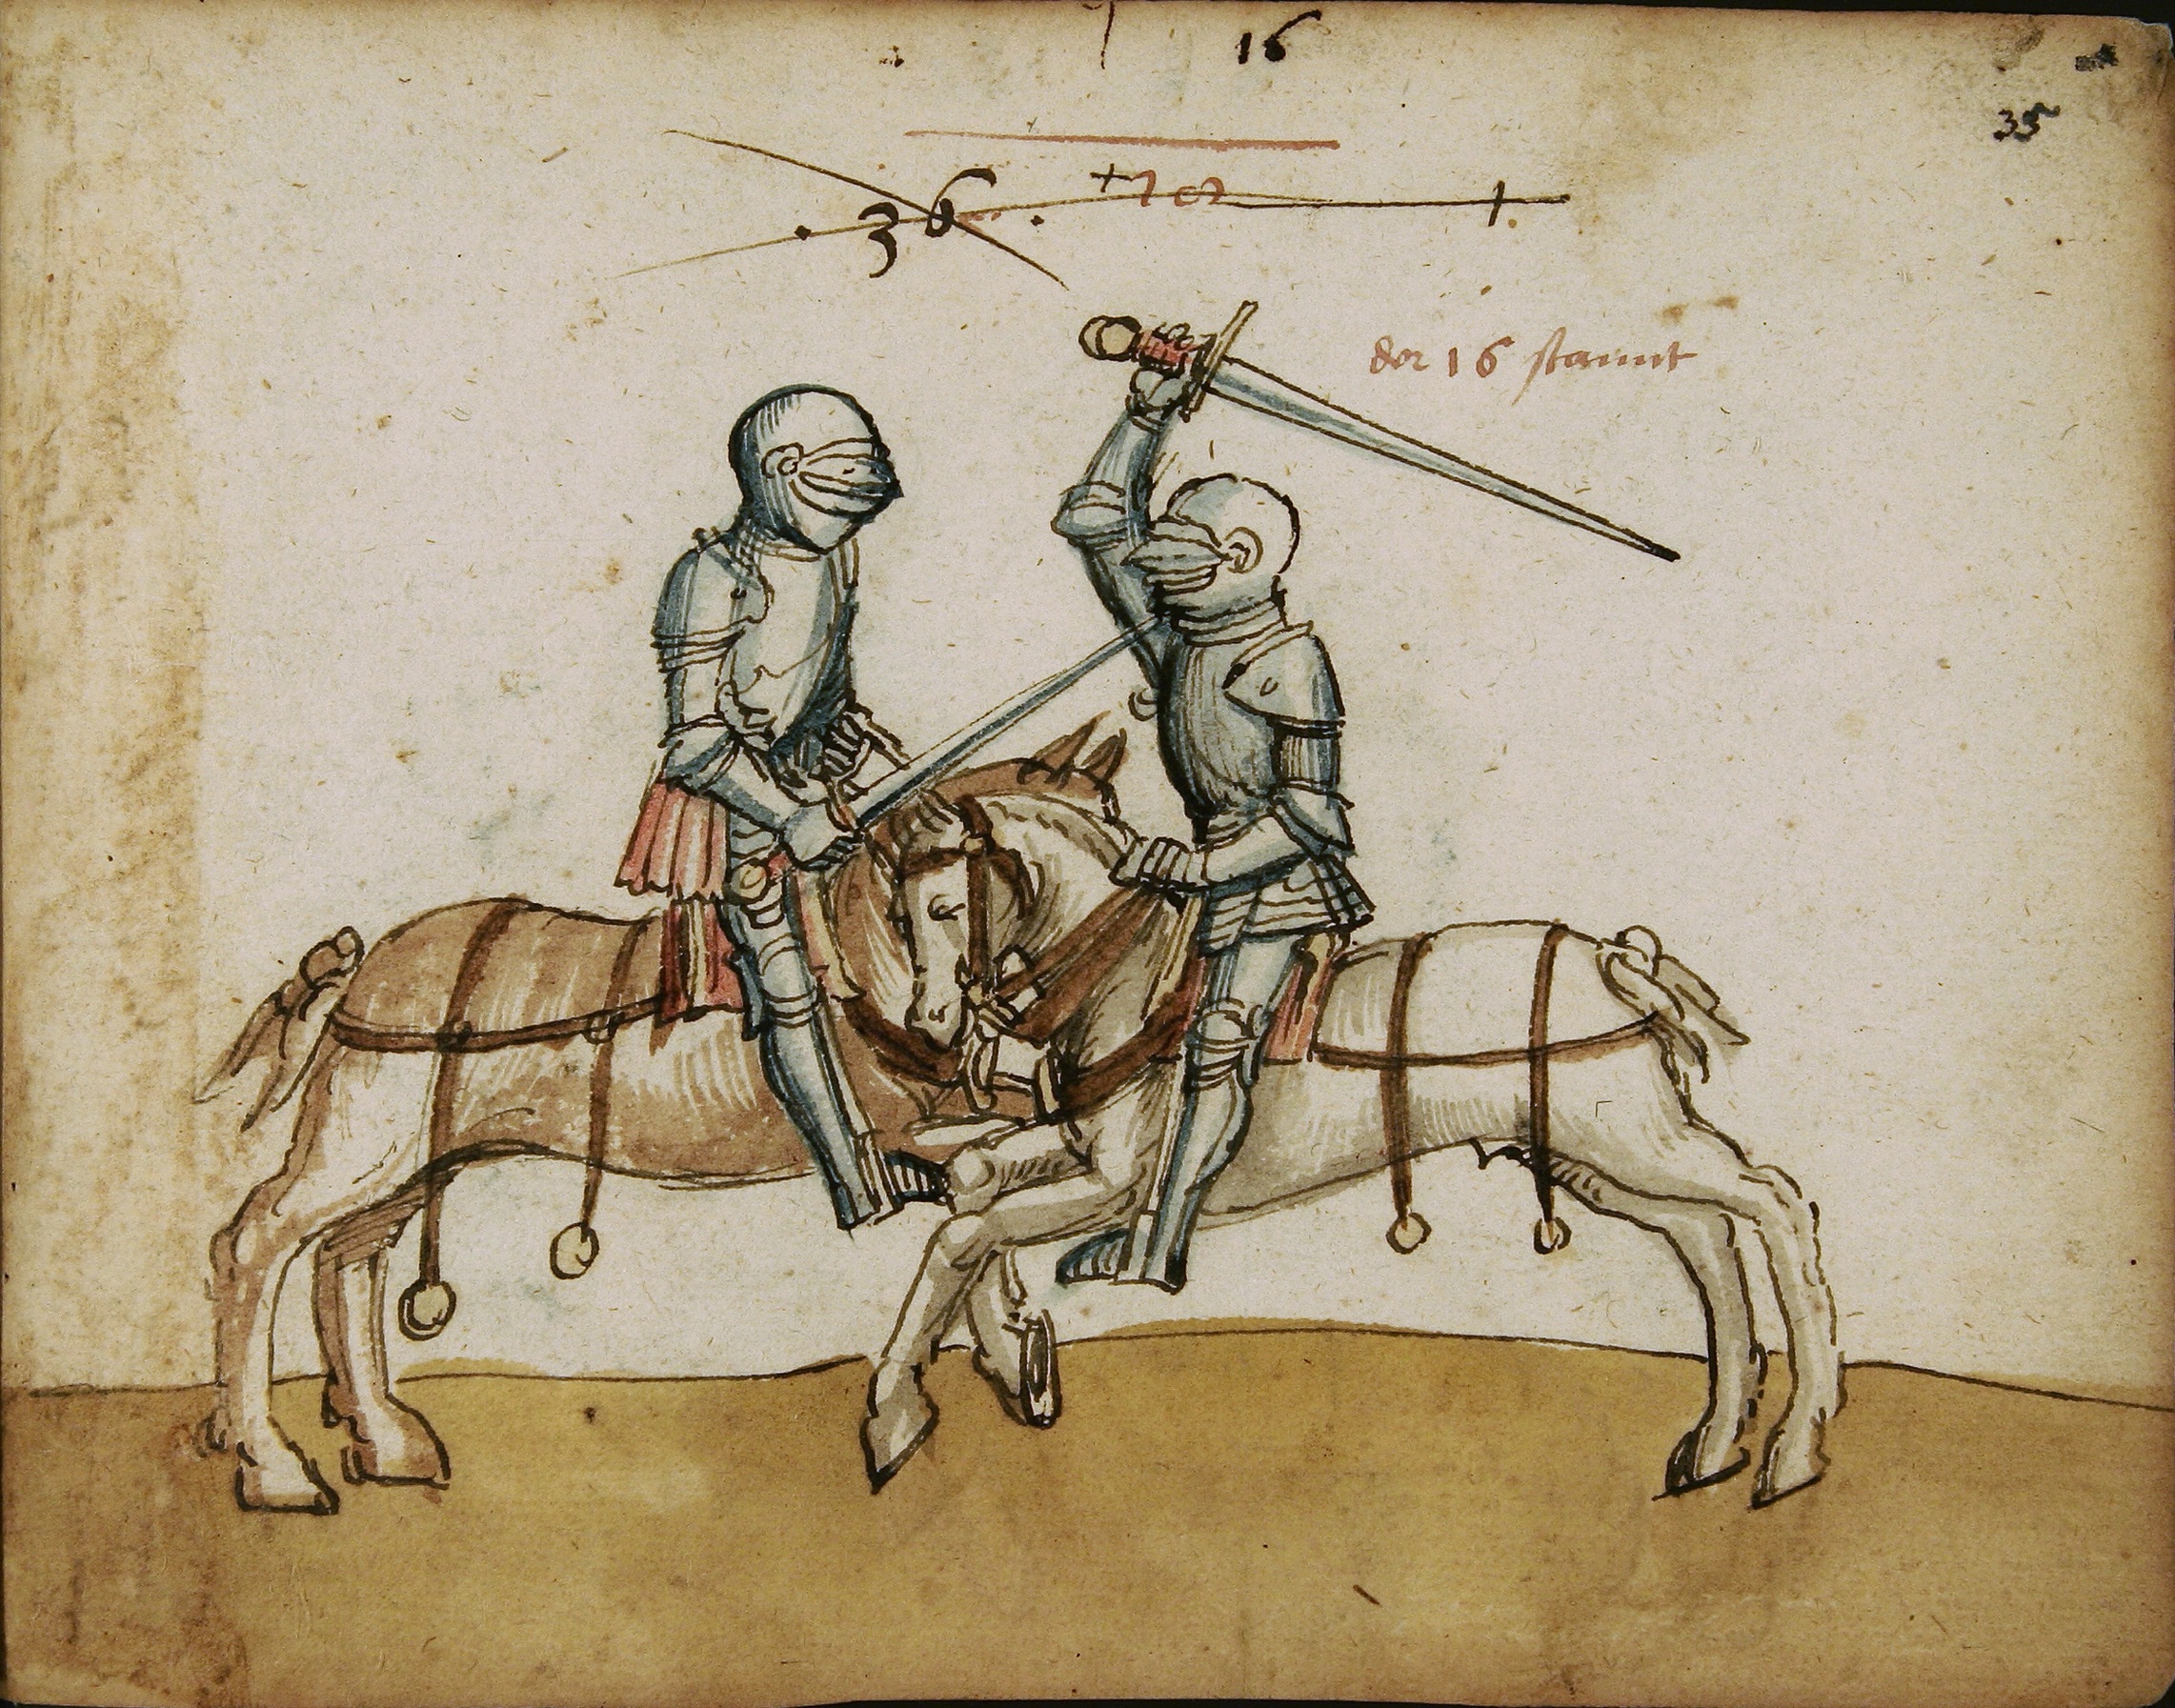 16
35
36
der 16 stannt